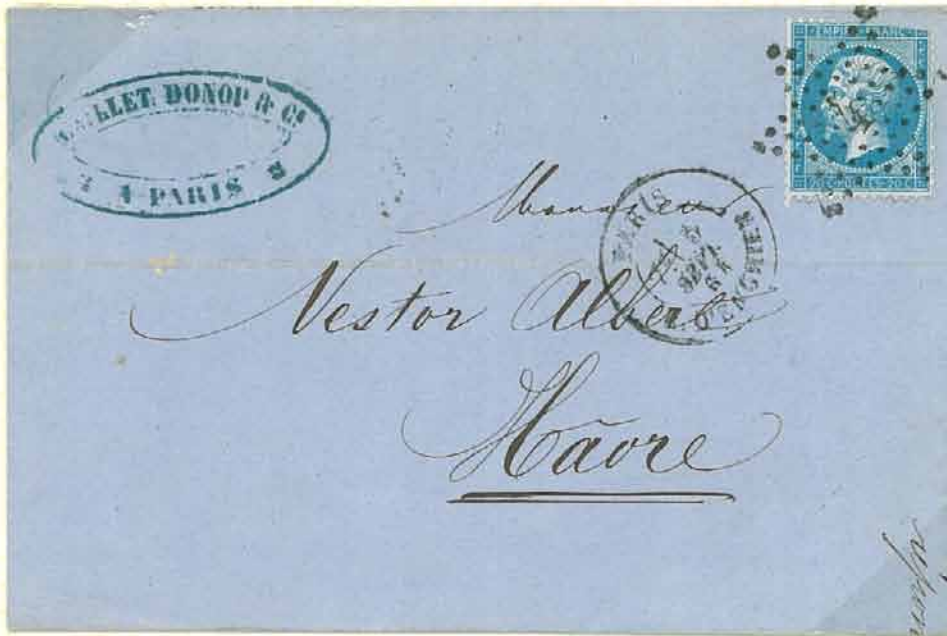 LLET, DONOP & Cº
A PARIS
EMPIRE FRANC
20 C POSTES 20 C
PARIS
SEPT
Monsieur
Nestor Albert
Hâvre